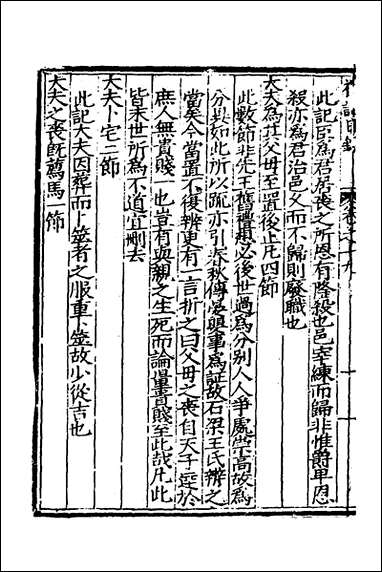 此記臣為君居喪之所恩有降殺也邑宰練而歸非惟爵卑恩
殺亦為君治邑文而不歸則廢職也
大夫為其父母至置後止凡四節
此數節非先王舊禮必後世過為分別人人爭處崇高故為
分異如此所以疏亦引春秋傳晏嬰事為証故石梁王氏辨之
當矣今當置不復辨更有一言折之曰父母之喪自天子達於
庶人無貴賤一也豈有與親之生死而論量貴賤至此哉凡此
皆末世所為不道宜刪去
大夫卜宅三節
此記大夫因葬而卜筮者之服重卜筮故少從吉也
大夫之喪旣薦馬一節